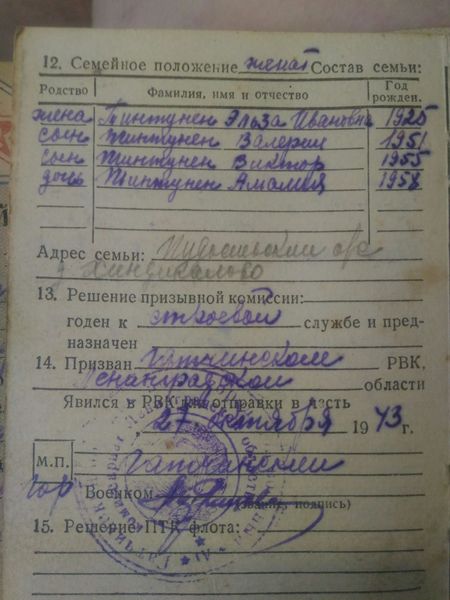 12. Семейное положение женат Состав семьи:
Родство Фамилия, имя и отчество Год рожден.
жена Пинтунен Эльза Ивановна 1925
сын Пинтунен Валерий 1951
сын Пинтунен Виктор 1955
дочь Пинтунен Амалия 1958
Адрес семьи:
д. Хиндикалово
13. Решение призывной комиссии:
годен к строевой службе и пред-
назначен
14. Призван Гатчинском РВК,
Ленинградской области
Явился в РВК для отправки в часть
27 октября 1943 г.
М.П. Гатчинский
гор Военком
(звание, подпись)
15. Решение ПТК флота: